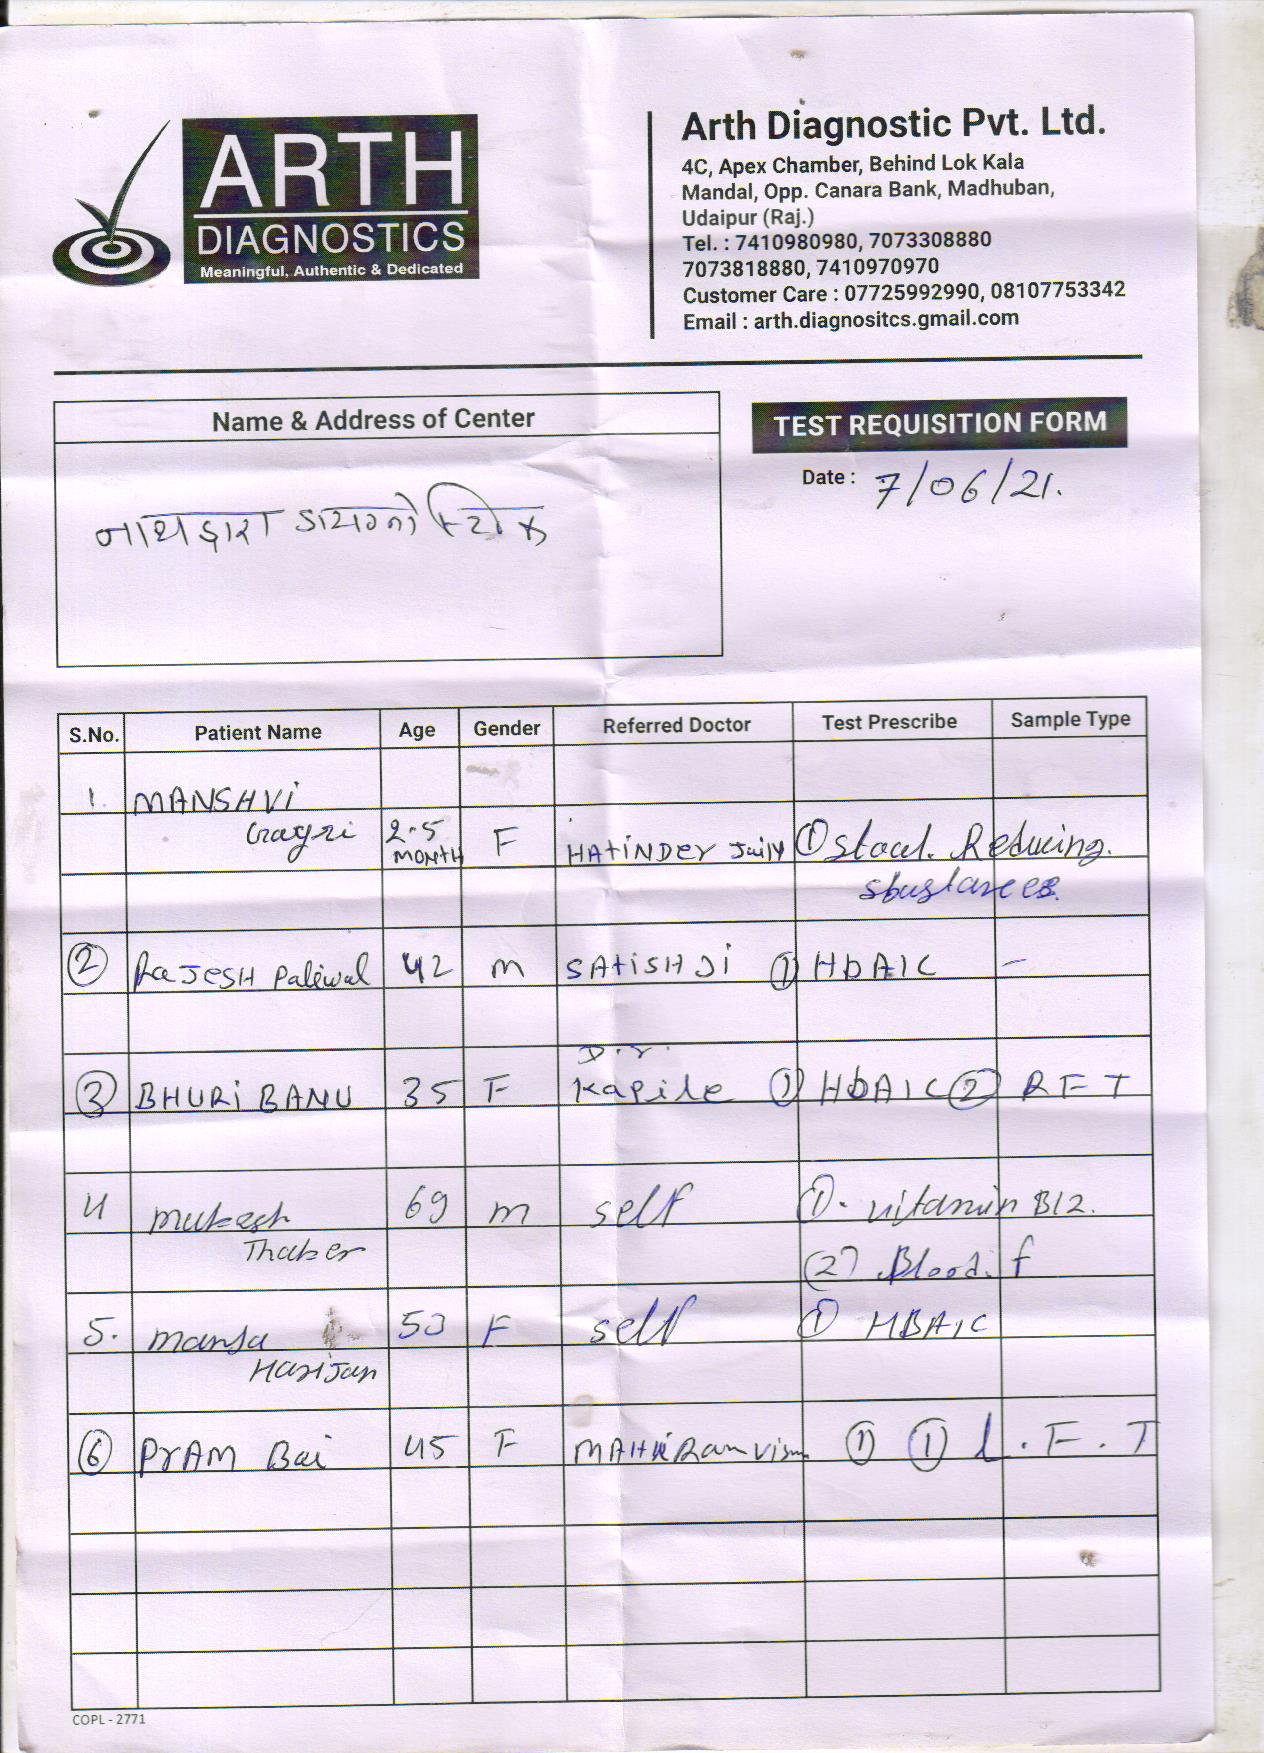 ARTH
DIAGNOSTICS
Meaningful, Authentic & Dedicated
Arth Diagnostic Pvt. Ltd.
4C, Apex Chamber, Behind Lok Kala
Mandal, Opp. Canara Bank, Madhuban,
Udaipur (Raj.)
Tel. : 7410980980, 7073308880
7073818880, 7410970970
Customer Care : 07725992990, 08107753342
Email : arth.diagnositcs.gmail.com
Name & Address of Center
TEST REQUISITION FORM
Date : 7/06/21.
नाथद्वारा
S.No. Patient Name Age Gender Referred Doctor Test Prescribe Sample Type
1. MANSHVI
2.5 MONTH F HATINDER ① Stool. Reducing.
② RAJESH Paliwal 42 M SATISH JI ① HbA1C -
D.r.
③ BHURI BANU 35 F Kapile ① HbA1C ② RFT
4 Mukesh 69 M self ①. vitamin B12.
Thaker (2) Blood. f
5. Mansa F self ① HBA1C
Harijan
⑥ PrAM Bai 45 F ① ① L.F.T
COPL - 2771